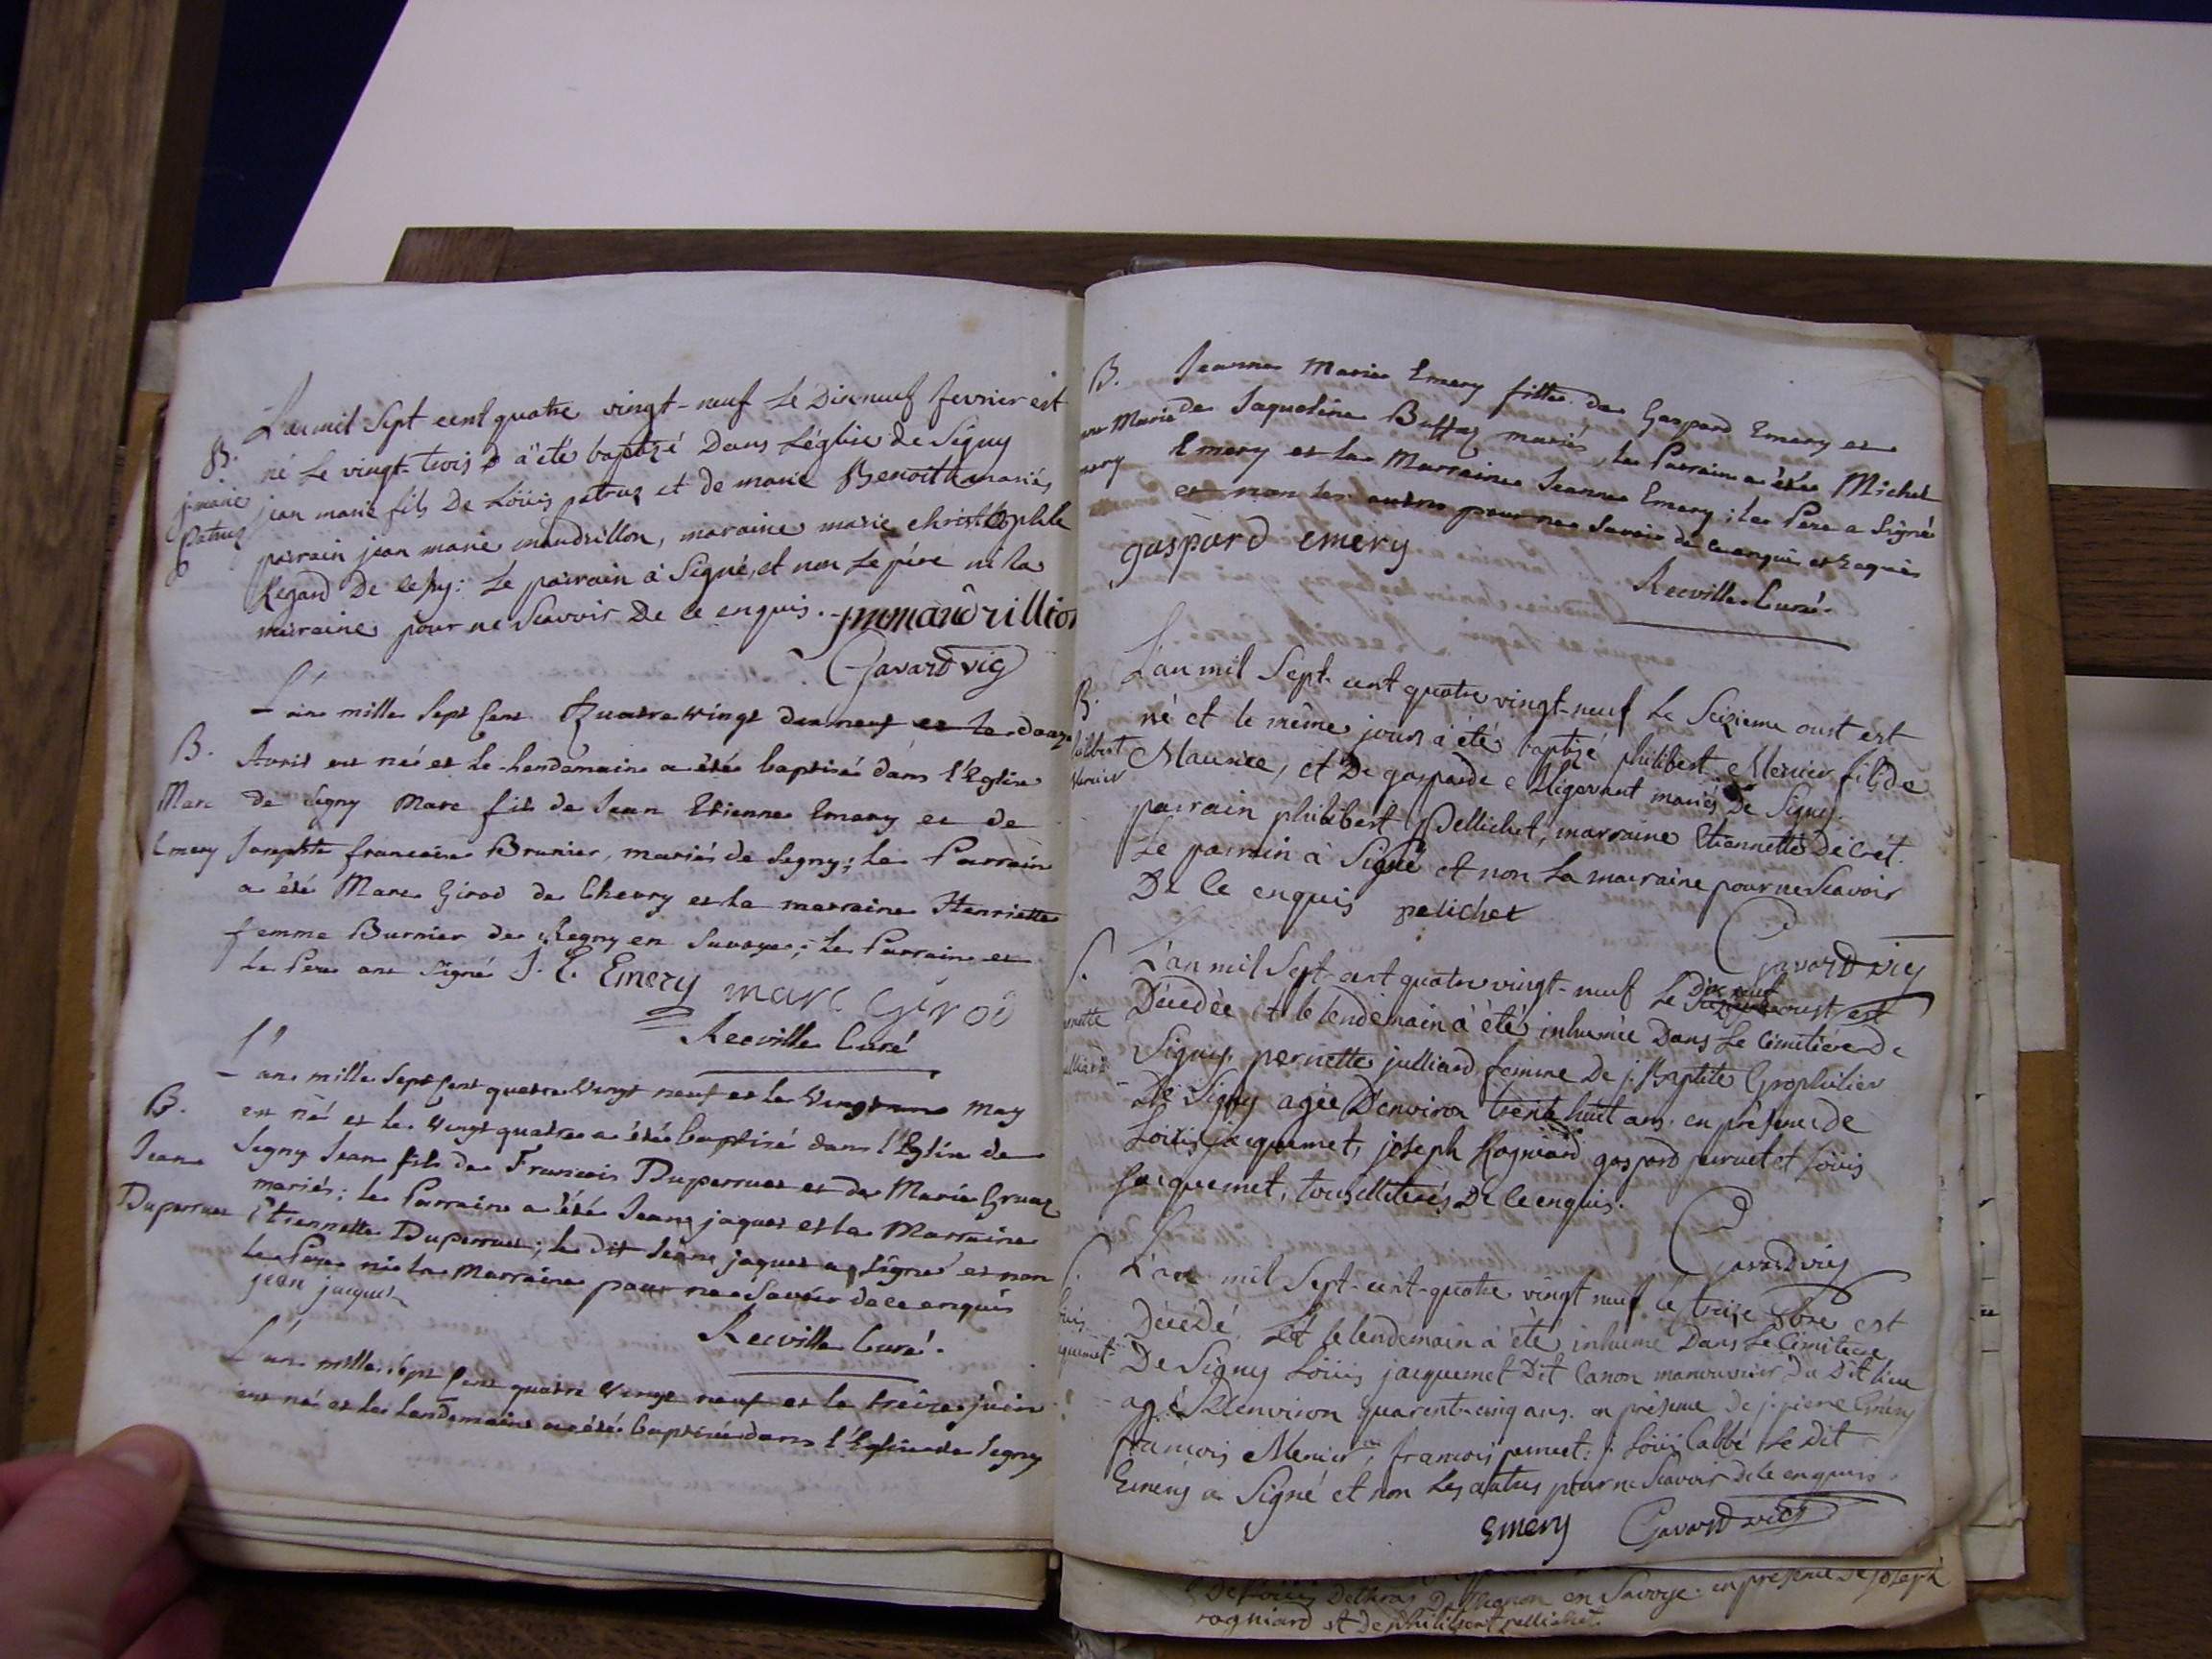 L'an mil Sept cent quatre vingt-neuf Le Dixneuf fevrier est
B. né Le vingt-trois a été baptizé Dans L'église de Segny
j. marie jean marie fils De Loüis patruz et de marie Benoitth mariés
Patruz parain jean marie mandrillon, maraine marie christophle
Regard De : Le parrain à Signé, et non Le père ni la
maraine pour ne Scavoir De ce enquis. jmmandrillion
Gavard vic
L'an mille Sept Cent Quatre vingt neuf et le douze
B. Avril est né et le lendemain a été baptisé dans l'Eglise
Marc de Segny Marc fils de Jean Etienne Emery et de
Emery Josephte francoise Brunier, mariés de Segny; le Parrain
a été Marc Girod de Chevry et la marraine Henriette
femme Burnier de Regny en Savoye; le Parrain et
le Pere ont signé J. E. Emery marc Girod
Recville Curé
L'an mille Sept Cent quatre Vingt neuf et le Vingt un may
B. est né et le Vingt quatre a été baptisé dans l'Eglise de
Jean Segny Jean fils de Francois Duperruet et de Marie Gruaz
Duperruet mariés; le Parrain a été Jean jaques et la Marraine
Etiennette Duperruet; le dit Jean jaques a signé et non
le Pere ni la Marraine pour ne Savoir de ce enquis
jean jaques
Recville Curé.
L'an mille Sept Cent quatre Vingt neuf et le treize juin
est né et le lendemain a été baptisé dans l'Eglise de Segny
B. Jeanne Marie Emery fille de Gaspard Emery et
Marie de Jaqueline Buffaz mariés, le Parrain a été Michel
Emery et la Marraine Jeanne Emery; le Pere a Signé
et non les autres pour ne Savoir de ce enquis et requis
gaspard emery
Recville Curé.
L'an mil Sept-cent quatre vingt-neuf Le Seizieme oust est
B. né et le même jour a été baptizé philibert Menier fils de
Maurice, et De gasparde Migovant mariés De Segny.
parrain philibert Pellichet, marraine Etiennette Décrêt.
Le parrain à Signé et non La marraine pour ne Scavoir
De Ce enquis pelichet
Gavard vic
S. L'an mil Sept-cent quatre vingt-neuf Le Dix neuf oust est
Décedée et le lendemain à été inhumée Dans Le Cimetière De
Signy, pernette julliard femme De j. Baptite Grosphilier
De Signy agée D'environ trente huit ans. en présence de
Loüis jacquemet, joseph Rogniard gaspard perruet et Loüis
jacquemet, tous illiterés De Ce enquis.
Gavard vic
L'an mil Sept-cent-quatre vingt neuf Le treize 8bre est
Décedé, Et le lendemain à été inhumé Dans Le Cimitiere
De Signy Loüis jacquemet Dit Canon manouvrier Du Dit lieu
agé D'environ quarente-cinq ans. en présence De j. pierre Emery
francois Menier, francois perruet: j. Loüis Labbé Le Dit
Emery a Signé et non Les autres pour ne Scavoir De Ce enquis.
Emery Gavard vic
De Loüis Delhras De en Savoye. en présence De joseph
rogniard et De philibert pellichet.